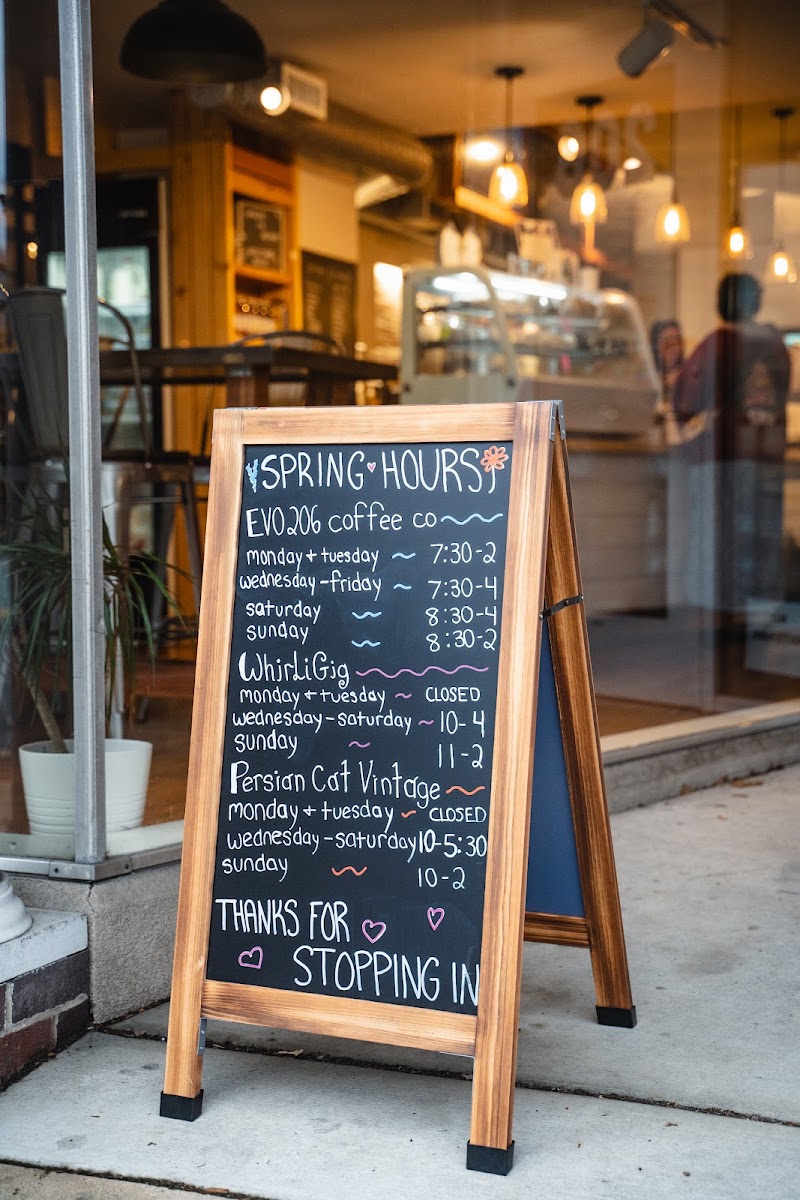 SPRING HOURS
EVO206 coffee co
monday + tuesday ~ 7:30-2
wednesday-friday ~ 7:30-4
saturday ~ 8:30-4
sunday ~ 8:30-2
WhirLiGig
monday + tuesday ~ CLOSED
wednesday-saturday ~ 10-4
sunday ~ 11-2
Persian Cat Vintage
monday + tuesday ~ CLOSED
wednesday-saturday 10-5:30
sunday ~ 10-2
THANKS FOR
STOPPING IN